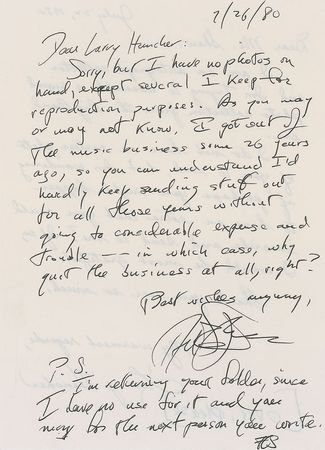 7/26/80
Dear Larry Hamcher:
Sorry, but I have no photos on
hand, except several I keep for
reproduction purposes. As you may
or may not know, I got out of
the music business some 26 years
ago, so you can understand I'd
hardly keep sending stuff out
for all those years without
going to considerable expense and
trouble — in which case, why
quit the business at all, right?
Best wishes anyway,
P.S.
I'm returning your folder, since
I have no use for it and you
may for the next person you write.
AS